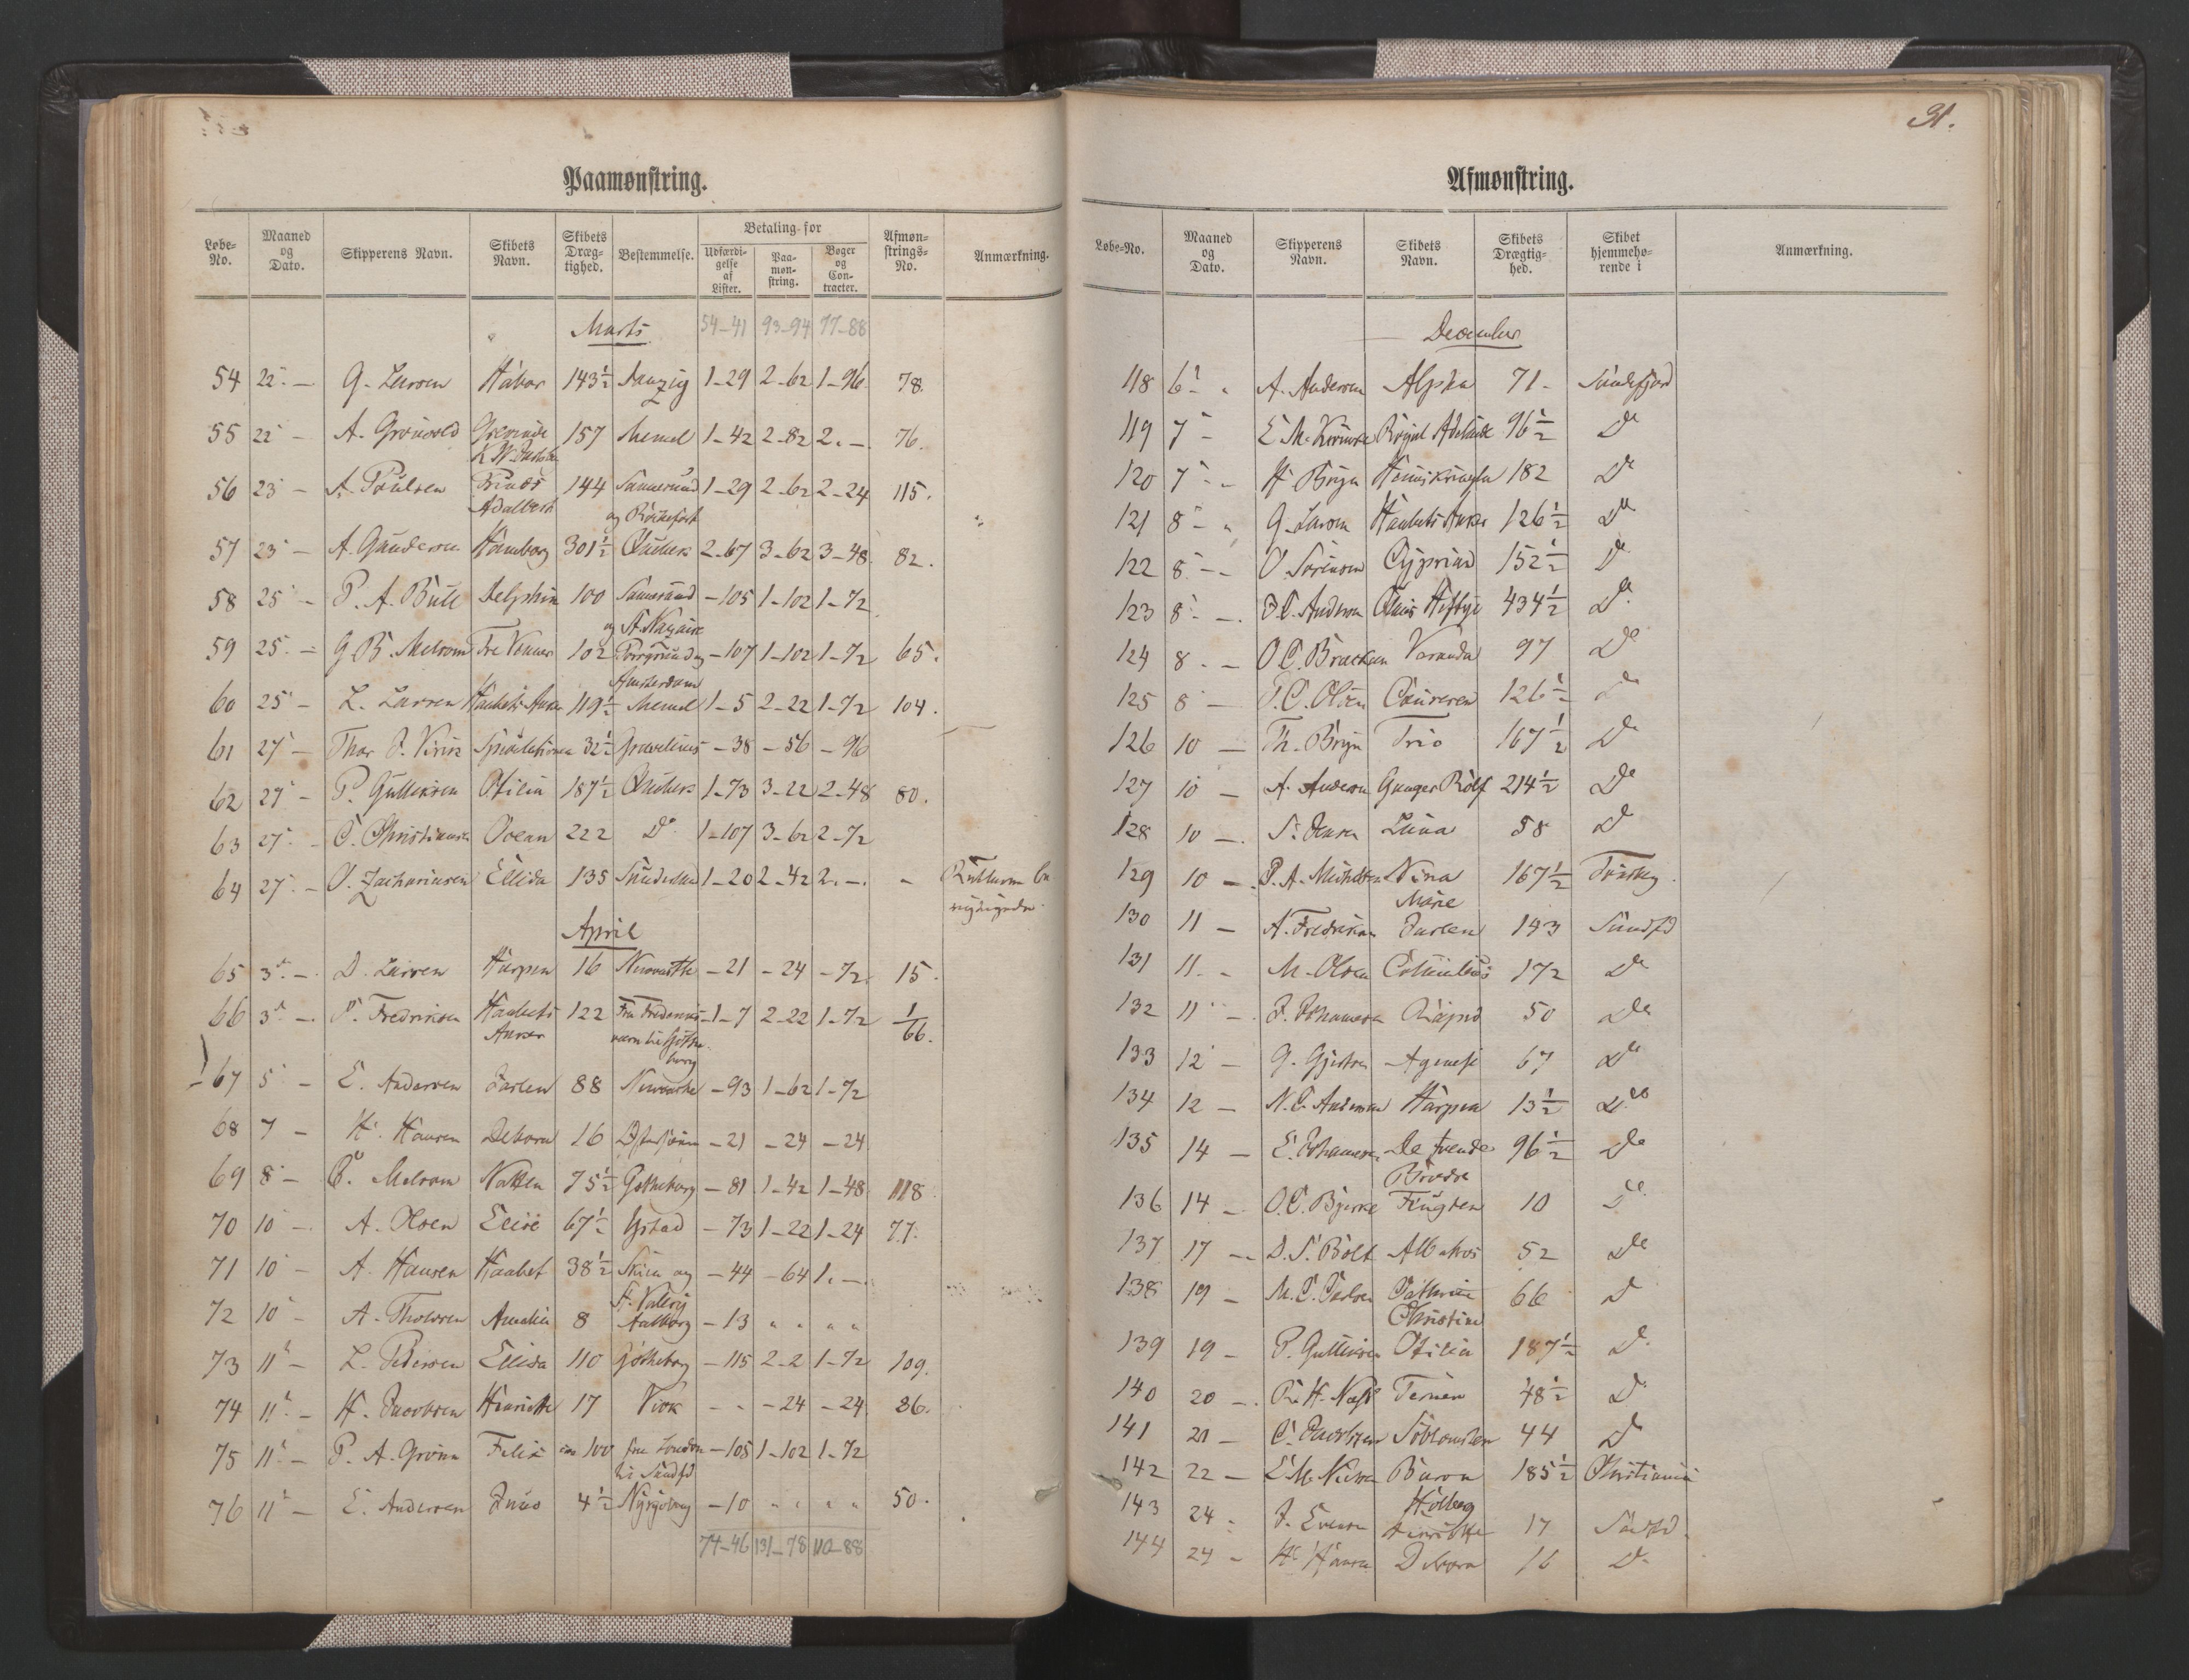 Paamønstring.
Løbe-No. Maaned og Dato. Skipperens Navn. Skibets Navn. Skibets Dræg-tighed. Bestemmelse. Betaling for Udfærdi-gelse af Lister. Paa-møn-string. Bøger og Con-tracter. Afmøn-strings-No. Anmærkning.
Marts 54-41 93-94 77-88
54 22 - G. Larsen Håbar 143½ Danzig 1-29 2-62 1-96 78.
55 22 - A. Grönvold 157 Memel 1-42 2-82 2.- 76.
56 23 - A. Poulsen Prinds Adalbert 144 1-29 2-62 2-24 115.
og Rochefort
57 23 - A. Gundersen Hamborg 301½ Quebek 2-67 3-62 3-48. 82.
58 25 - P. A. Bull Delphin 100 -105 1-102 1-72
og St. Nazaire
59 25. - G. B. Melsom Tre Venner 102 Porsgrund og Amsterdam -107 1-102 1-72 65.
60 25 - L. Larsen Haabets Anker 119½ Memel 1-5 2-22 1-72 104.
61 27 - Thor J. Virik 32½ -38 -56 -96
62 27 - P. Gulliksen Otilia 187½ Quebek 1-73 3-22 2-48 80.
63 27. - C. Christiansen Ocean 222 Do 1-107 3-62 2-72
64 27. - O. Zachariasen Ellida 135 1-20 2-42 2.-. -
April
65 3d. - D. Larsen Harpen 16 Newcastle -21 -24 -72. 15.
66 3d. - P. Fredriksen Haabets Anker 122 Fra Frederiks-værn til Götheborg 1-7 2-22 1-72 1/66.
67 5 - E. Andersen Jarlen 88 Newcastle -93 1-62 1-72
68 7 - H. Hansen Debora 16 -21 -24 -24
69 8 - B. Melsom Natten 75½ Götheborg -81 1-42 1-48 118
70 10 - A. Olsen Elise 67½ Ystad -73 1-22 1-24 77.
71 10 - A. Hansen Haabet 38½ Skien og St. Valery -44 -64 1.-.
72 10 - A. Thorsen Amalia 8 Aalborg -13 " " " "
73 11 - L. Pedersen Ellida 110 Götheborg -115 2-2 1-72 109.
74 11 - H. Jacobsen Henriette 17 Virk - - -24 -24 86.
75 11 - P. A. Grönn Felix ca 100 fra London til Sandfd -105 1-102 1-72
76 11 - E. Andersen Juno 4½ Nykjobing -10 " " " " 50.
74-46 131-78 110-88
31.
Afmønstring.
Løbe-No. Maaned og Dato. Skipperens Navn. Skibets Navn. Skibets Drægtig-hed. Skibet hjemmehø-rende i Anmærkning.
December
118 6 - A. Andersen Alpha 71 - Sandefjord
119 7 - Royal Adelaide 96½ Do
120 7 - H. Bryn Heimskringla 182 Do
121 8 - G. Larsen Haabets Anker 126½ Do
122 8 - O. Sörensen Cyprian 152½ Do
123 8 - Andersen 434½ Do
124 8 - O. C. Veranda 97 Do
125 8 - Olsen 126½ Do
126 10 - Th. Bryn Trio 167½ Do
127 10 - A. Andersen Ganger Rolf 214½ Do
128 10 - S. Jensen Luna 58 Do
129 10 - P. A. Nina 167½ Tönsberg
Marie
130 11 - A. Fredriksen Jarlen 193 Sandfd
131 11 - M. Olsen 172 Do
132 11 - J. Johannesen 50 Do
133 12 - 67 Do
134 12 - N. C. Andersen Harpen 13½ Do
135 14 - E. Johannesen De tvende Brødre 96½ Do
136 14 - O. C. Bjerke 10 Do
137 17 - D. S. Bolt Albatros 52 Do
138 19 - M. C. Carlsen Cathrine Christine 66 Do
139 19 - P. Gulliksen Otilia 187½ Do
140 20 - Ternen 48½ Do
141 21 - C. Jacobsen 44 Do
142 22 - E. M. Baron Holberg 185½ Christiania
143 24 - J. Evensen Henriette 17 Sandfd.
144 24 - H. Hansen Debora 16 Do